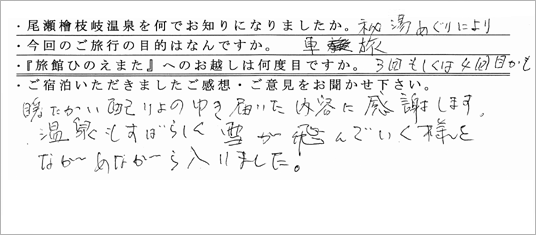 ・尾瀬檜枝岐温泉を何でお知りになりましたか。秘湯めぐりにより
・今回のご旅行の目的はなんですか。 車旅
・『旅館ひのえまた』へのお越しは何度目ですか。3回もしくは4回目かも
・ご宿泊いただきましたご感想・ご意見をお聞かせ下さい。
暖たかい配りょのゆき届いた内容に感謝します。
温泉もすばらしく雪が飛んでいく様を
ながめながら入りました。